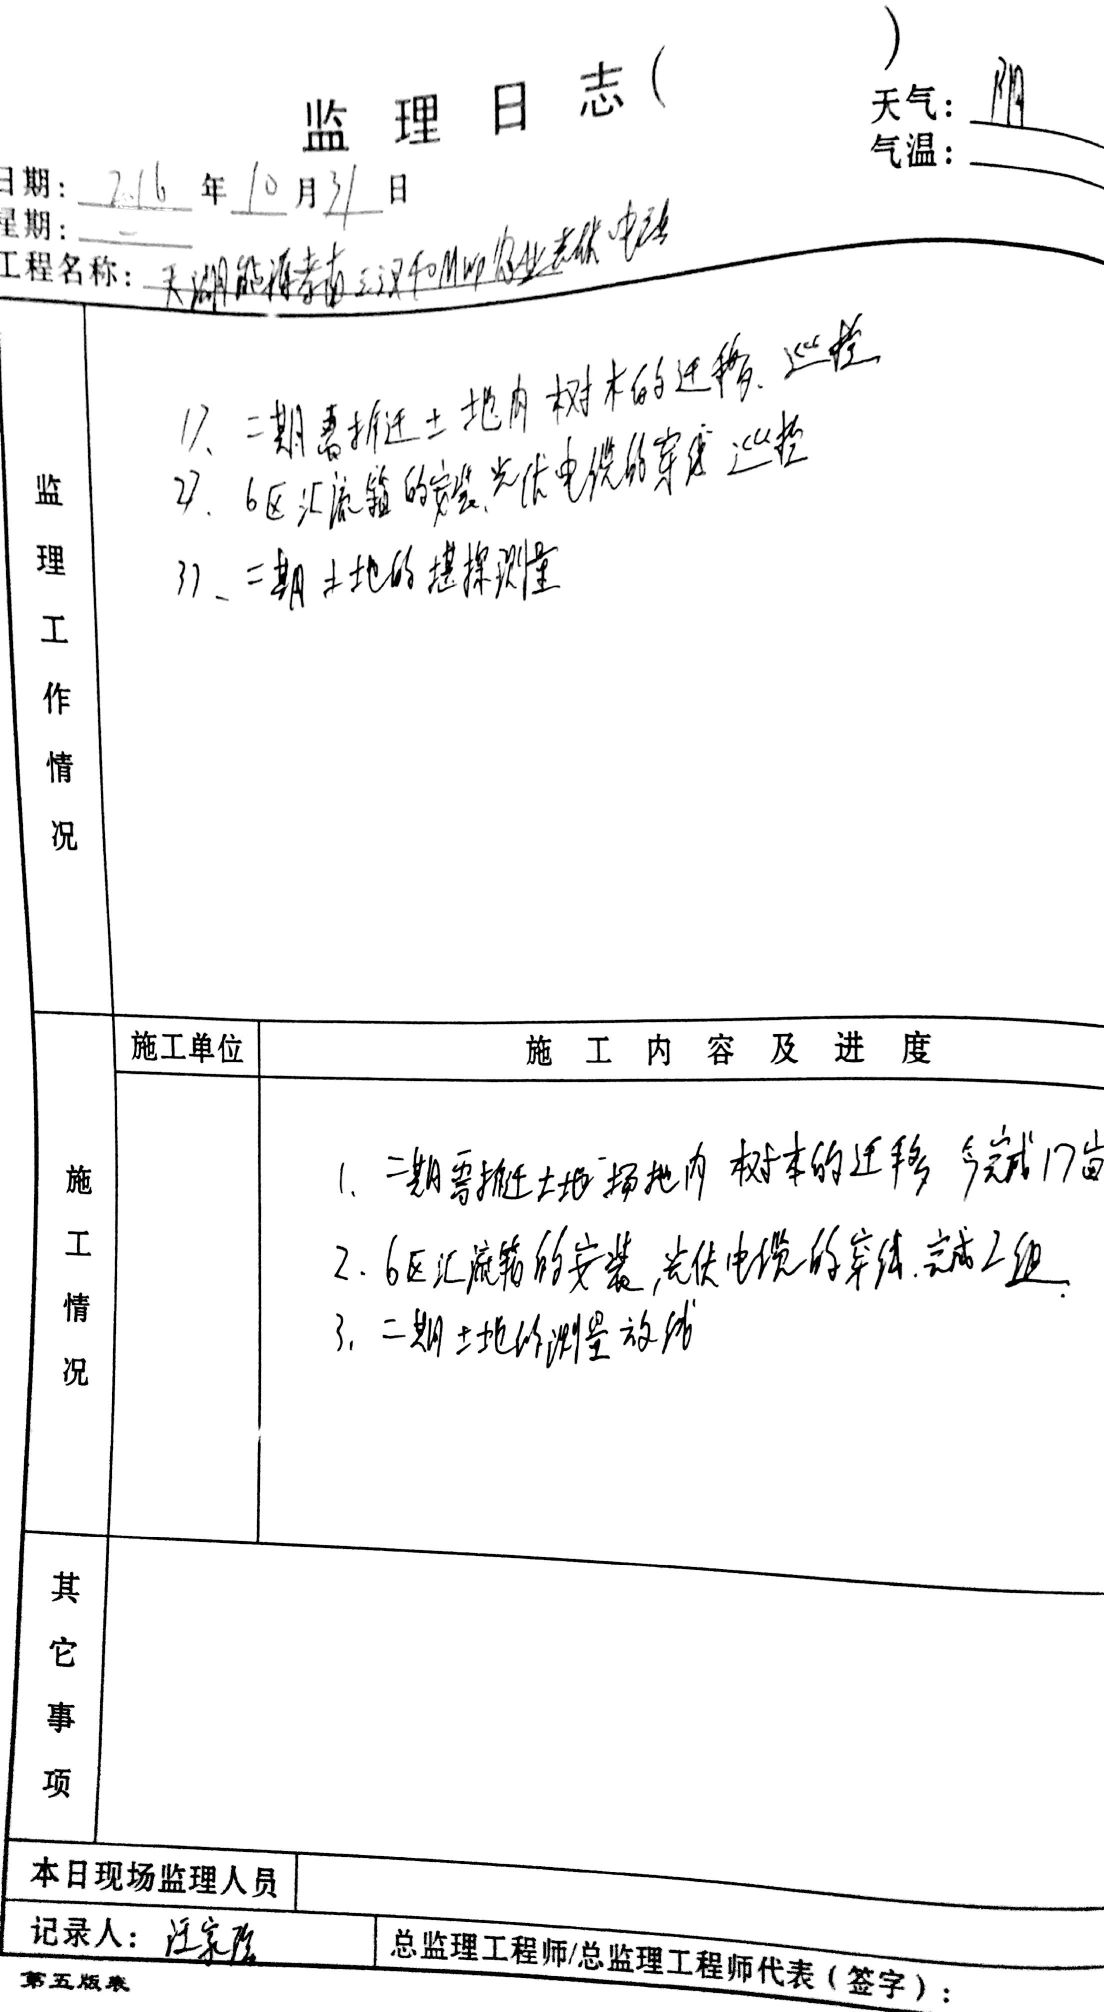 监理日志（ ）
天气：阴
气温：
日期：2016年10月31日
星期：一
工程名称：天湖能源孝南三汊40MWp农业光伏电站
监理工作情况
1）、二期需拆迁土地内树木的迁移、巡检
2）、6区汇流箱的安装、光伏电缆的穿线 巡检
3）、二期土地的堪探测量
施工情况
施工单位
施工内容及进度
1、二期需拆迁土地 场地内树木的迁移 今完成17亩
2、6区汇流箱的安装，光伏电缆的穿线、完成2组.
3、二期土地的测量放线
其它事项
本日现场监理人员
记录人：汪家
总监理工程师/总监理工程师代表（签字）：
第五版表